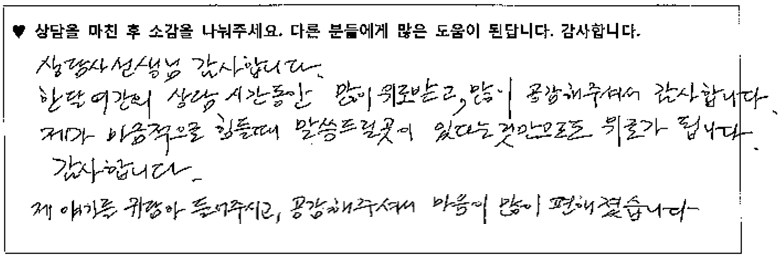 ♥ 상담을 마친 후 소감을 나눠주세요. 다른 분들에게 많은 도움이 된답니다. 감사합니다.
상담사선생님 감사합니다.
한달여간의 상담 시간동안 많이 위로받고, 많이 공감해주셔서 감사합니다.
제가 마음적으로 힘들때 말씀드릴곳이 있다는것만으로도 위로가 됩니다.
감사합니다.
제 얘기를 귀담아 들어주시고, 공감해주셔서 마음이 많이 편해졌습니다